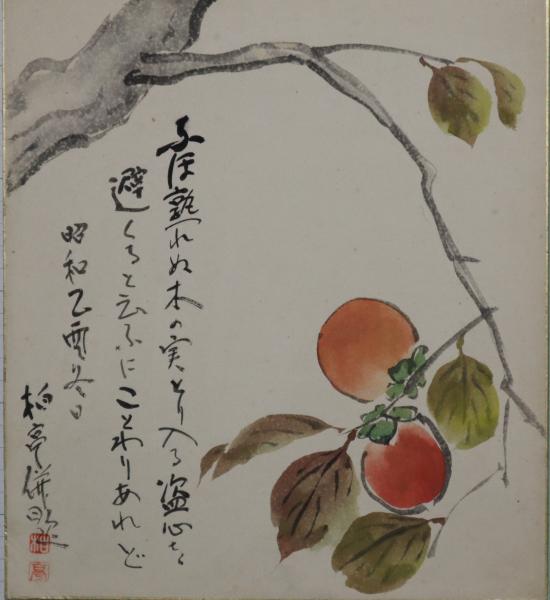 なほ熟れぬ木の実とり入る盗心を
避くると云ふにことわりあれど
昭和乙酉冬日
柏亭併歌
柏亭